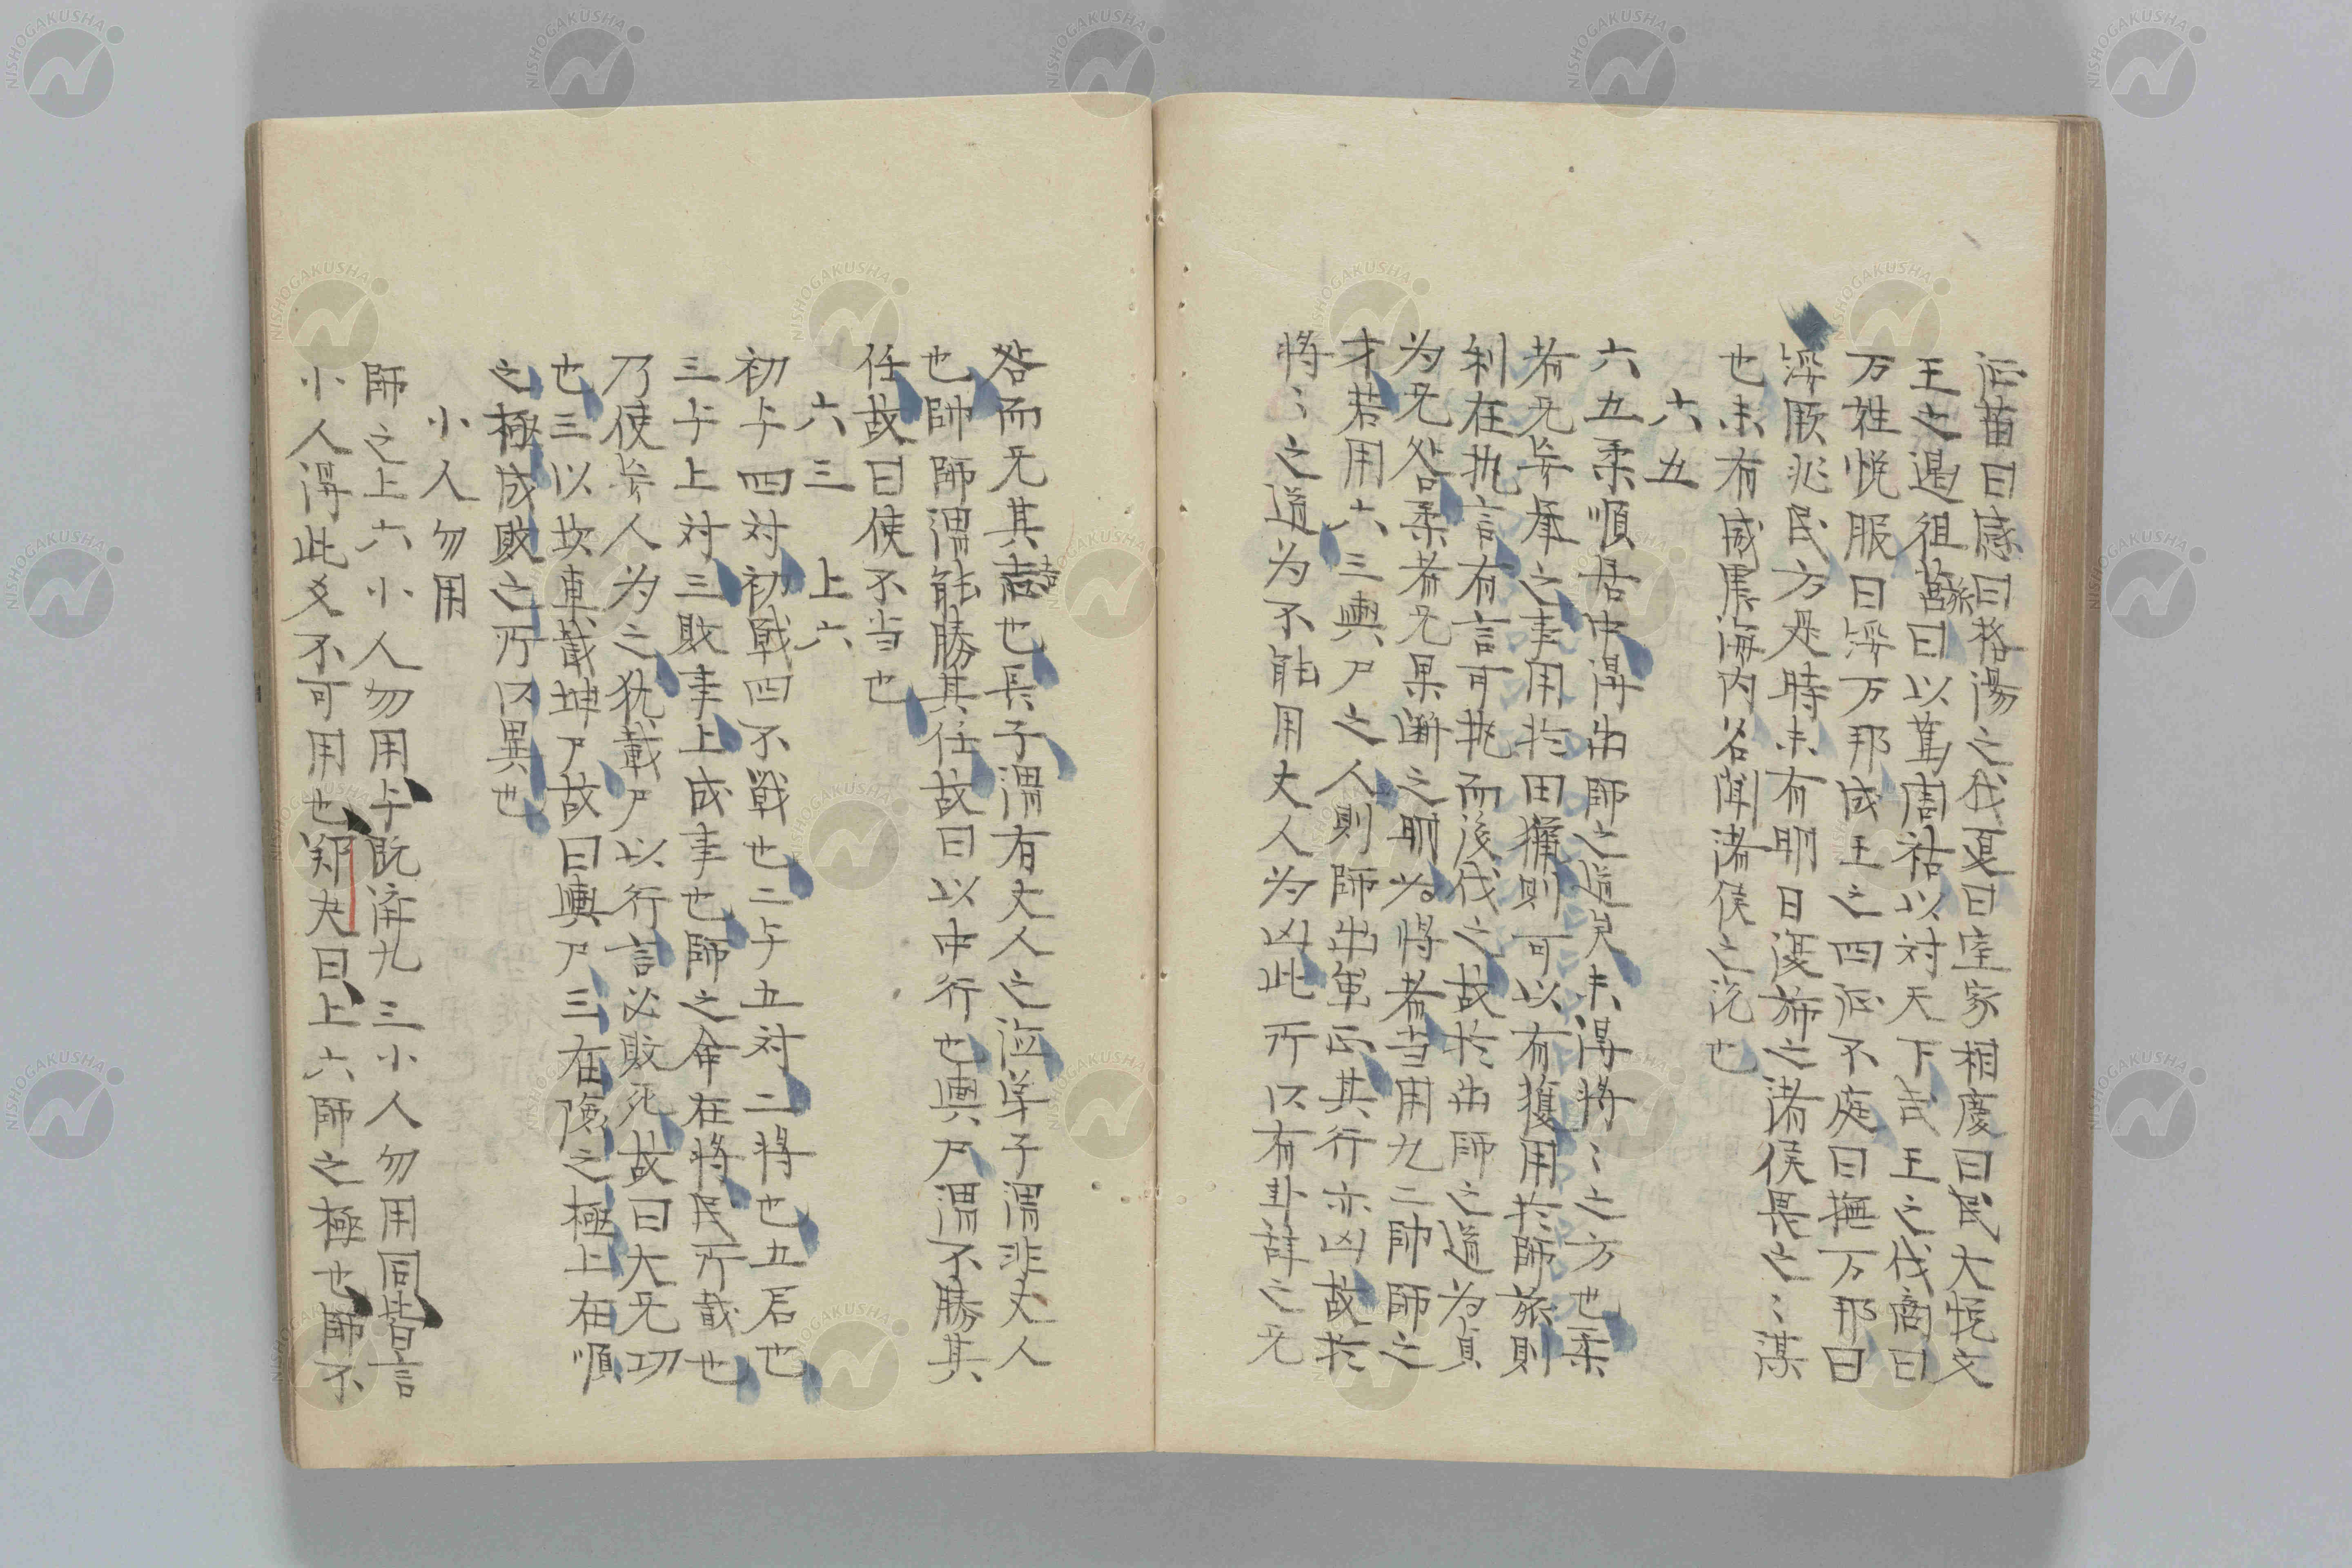 征苗曰感曰格湯之伐夏曰室家相慶曰民大悦文
王之遏徂莒旅曰以篤周祜以対天下武王之伐商曰
万姓悦服曰綏万邦成王之四征不庭曰撫万邦曰
綏厥兆民方是時未有明日漫施之諸侯畏之〻謀
也未有威震海内名聞諸侯之說也
六五
六五柔順居中得出師之道矣未得将〻之方也柔
者无爭奪之事用於田獵則可以有獲用於師旅則
利在执言有言可执而後伐之故於出師之道为貞
为无咎柔者无果断之明为将者当用九二帥師之
才若用六三輿尸之人則師出虽正其行亦凶故於
将〻之道为不能用丈人为凶此所以有卦辞之无
咎而无其吉也長子謂有丈人之位弟子謂非丈人
也帥師謂能勝其任故曰以中行也輿尸謂不勝其
任故曰使不当也
六三 上六
初与四対初戰四不戰也二与五対二将也五君也
三与上対三敗事上成事也師之命在将民所載也
乃使爭人为之犹載尸以行言必敗死故曰大无功
也三以坎車載坤尸故曰輿尸三在險之極上在順
之極成敗之所以異也
小人勿用
師之上六小人勿用与既濟九三小人勿用同皆言
小人得此爻不可用也郑夬曰上六師之極也師不
NISHOGAKUSHA